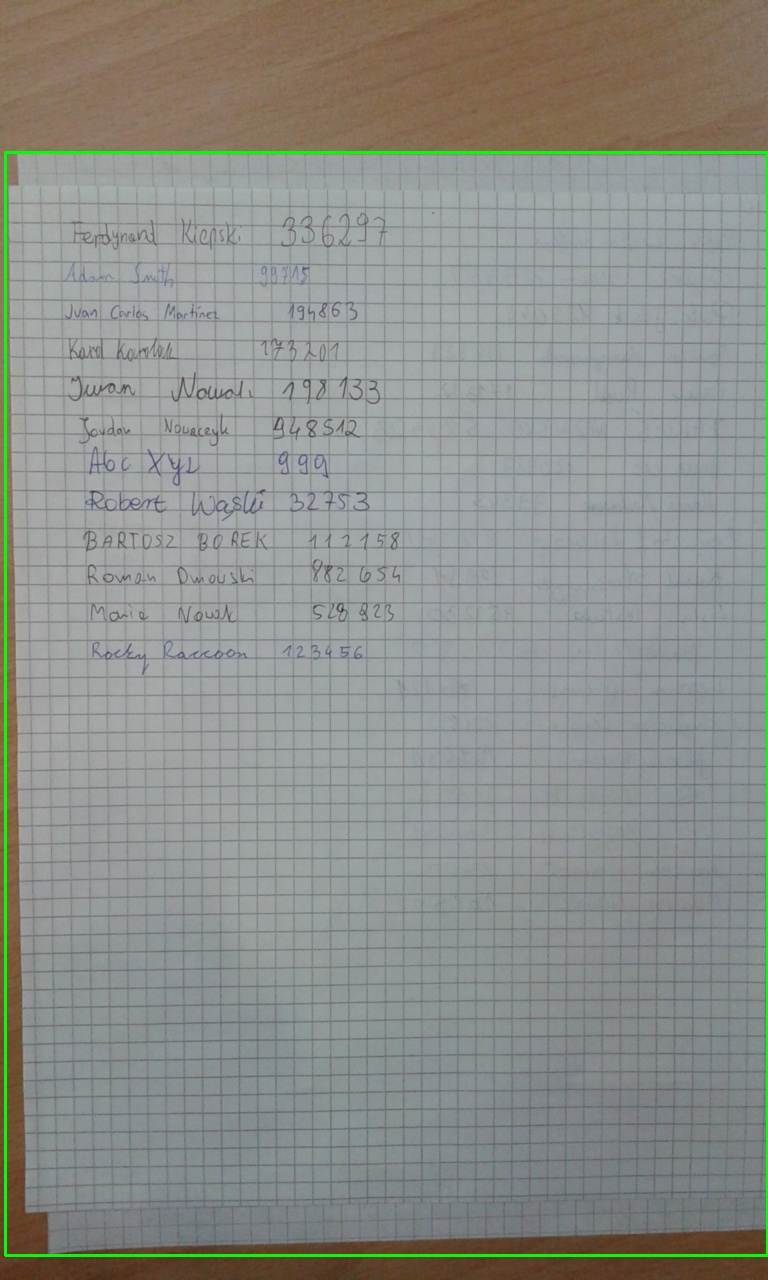 Ferdynand Kiepski 336297
Adam Smith 99715
Juan Carlos Martinez 194863
Karol Karolak 173201
Iwan Nowak 198133
Jordan Nowaczyk 948512
Abc Xyz 999
Robert Wąski 32753
BARTOSZ BOREK 112158
Roman Dmowski 882 654
Maria Nowak 528 923
Rocky Raccoon 123456